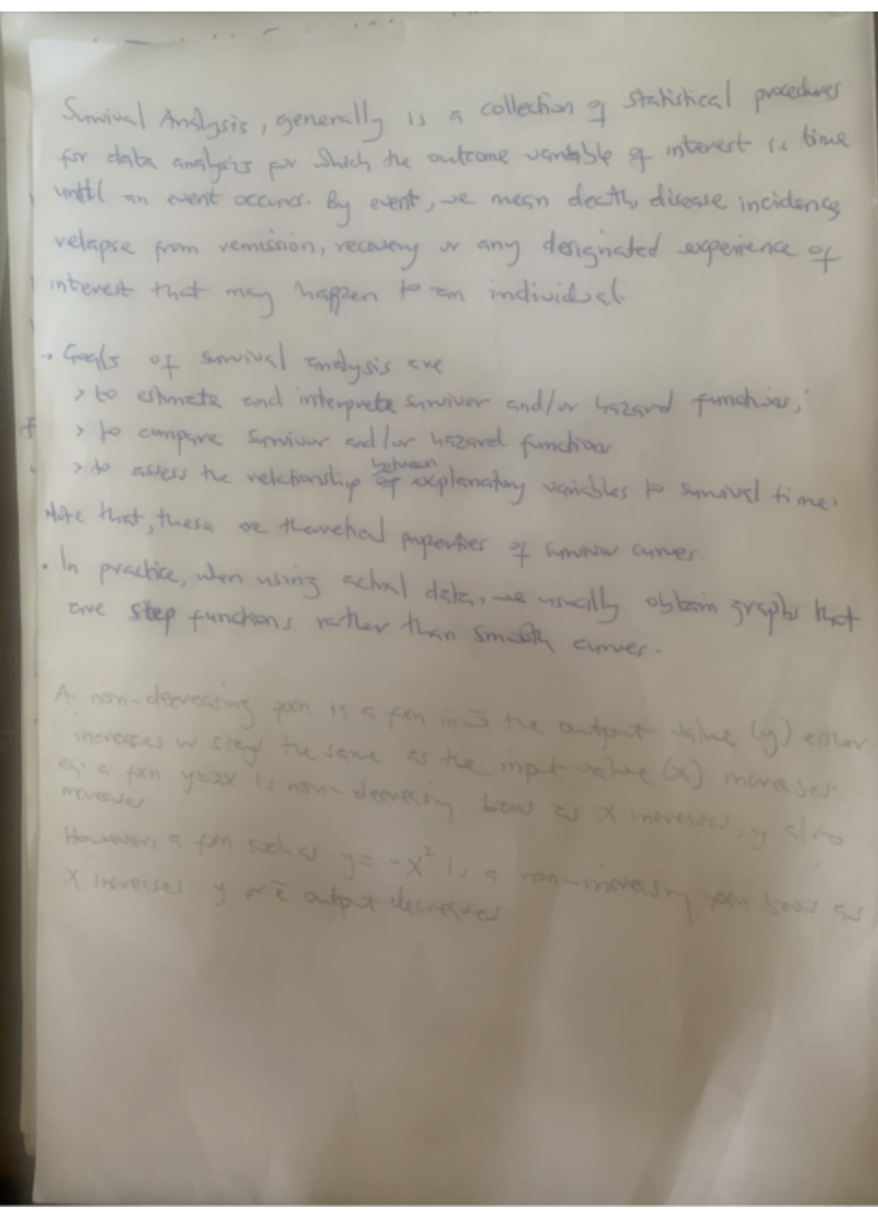 Survival Analysis, generally is a collection of statistical procedures
for data analysis for which the outcome variable of interest is time
until an event occurs. By event, we mean death, disease incidence,
relapse from remission, recovery or any designated experience of
interest that may happen to an individual.
• Goals of survival analysis are
> to estimate and interprete survivor and/or hazard functions;
> to compare survivor and/or hazard function
> to assess the relationship between of explanatory variables to survival time.
Note that, these are theoretical properties of survivor curves.
• In practice, when using actual data, we usually obtain graphs that
are step functions rather than smooth curves.
A non-decreasing fxn is a fxn in the output value (y) either
increases or stays the same as the input value (x) increases.
eg: a fxn y=2x is non-decreasing bcos as x increases, y also
increases
However, a fxn such as y = -x² is a non-increasing fxn bcos as
x increases y output decreases